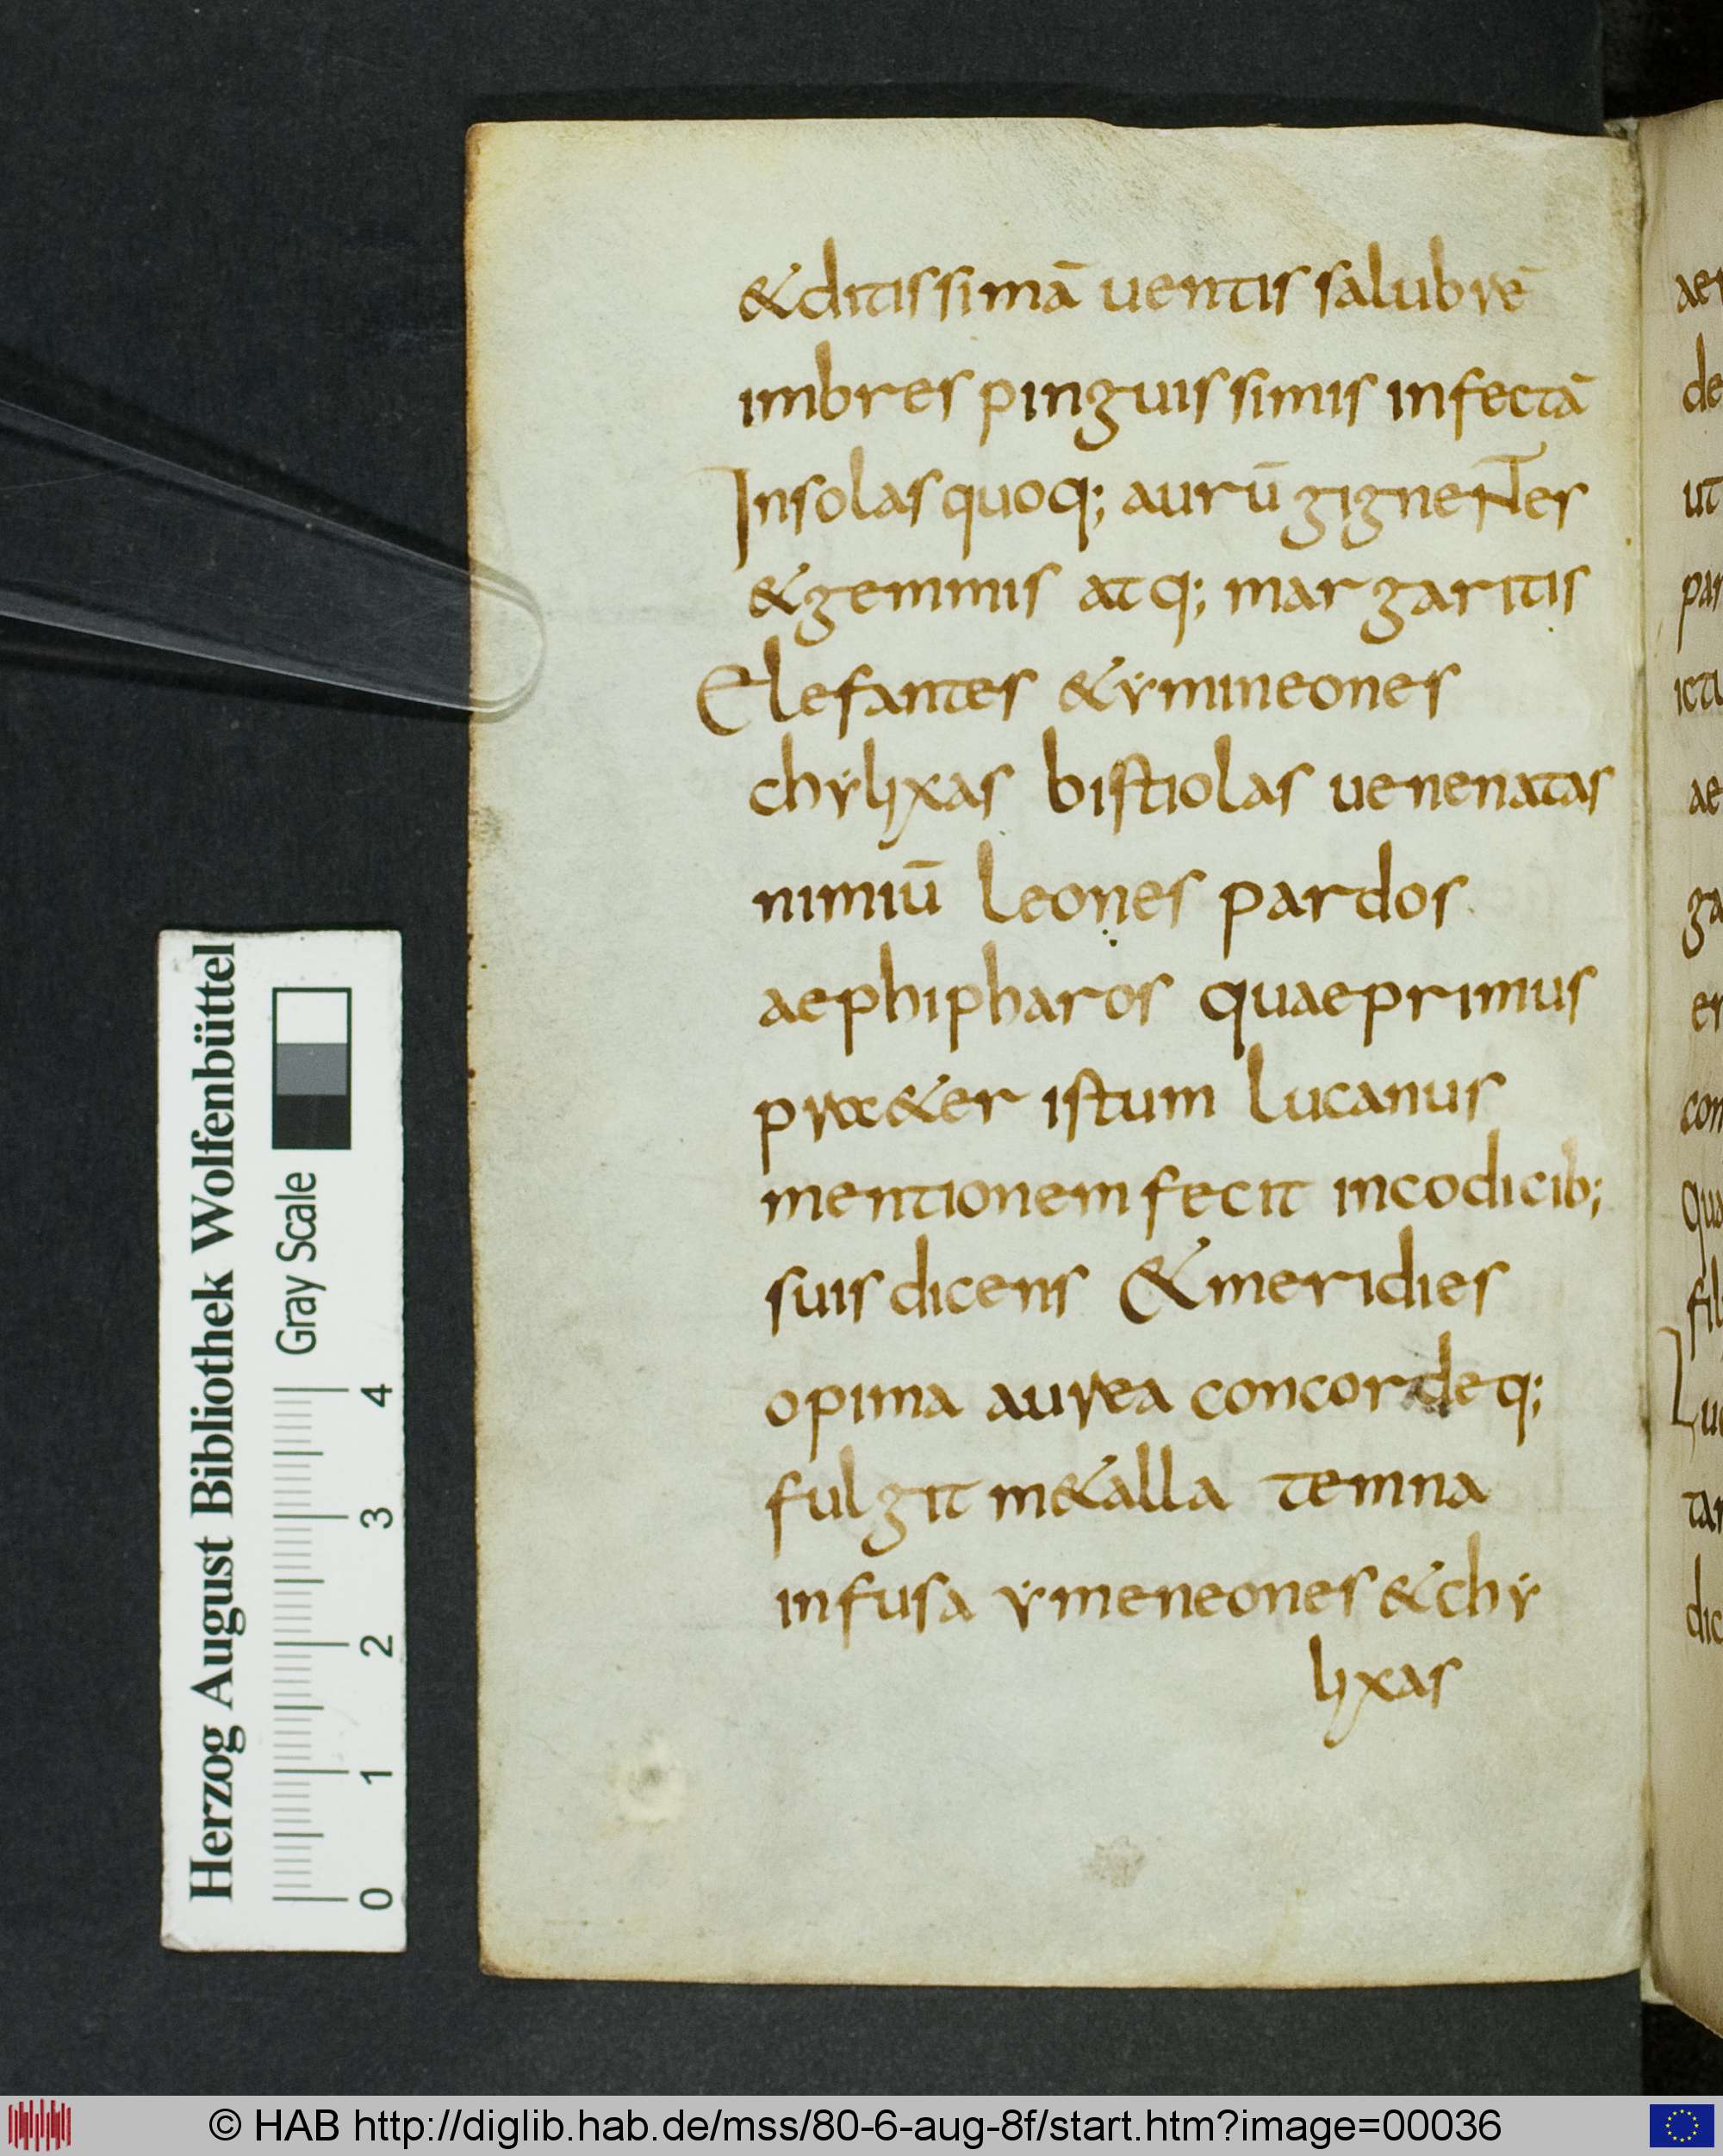 &ditissimā uentis salubrē
imbres pinguissimis infectā
Insolas quoq; aurū gignentes
&gemmis atq; margaritis
Elefantes &ẏmineones
chẏlixas bistiolas uenenatas
nimiū leones pardos
aephipharos quaeprimus
prae&er istum lucanus
mentionem fecit incodicib;
suis dicens &meridies
opima aurea concordeq;
fulgit m&alla temna
infusa ẏmeneones &chẏ
lixas
aer
de
ut
par
ictu
ae
ga
er
con
qua
fil
Lu
tar
dic
Herzog August Bibliothek Wolfenbüttel
Gray Scale
0 1 2 3 4
© HAB http://diglib.hab.de/mss/80-6-aug-8f/start.htm?image=00036